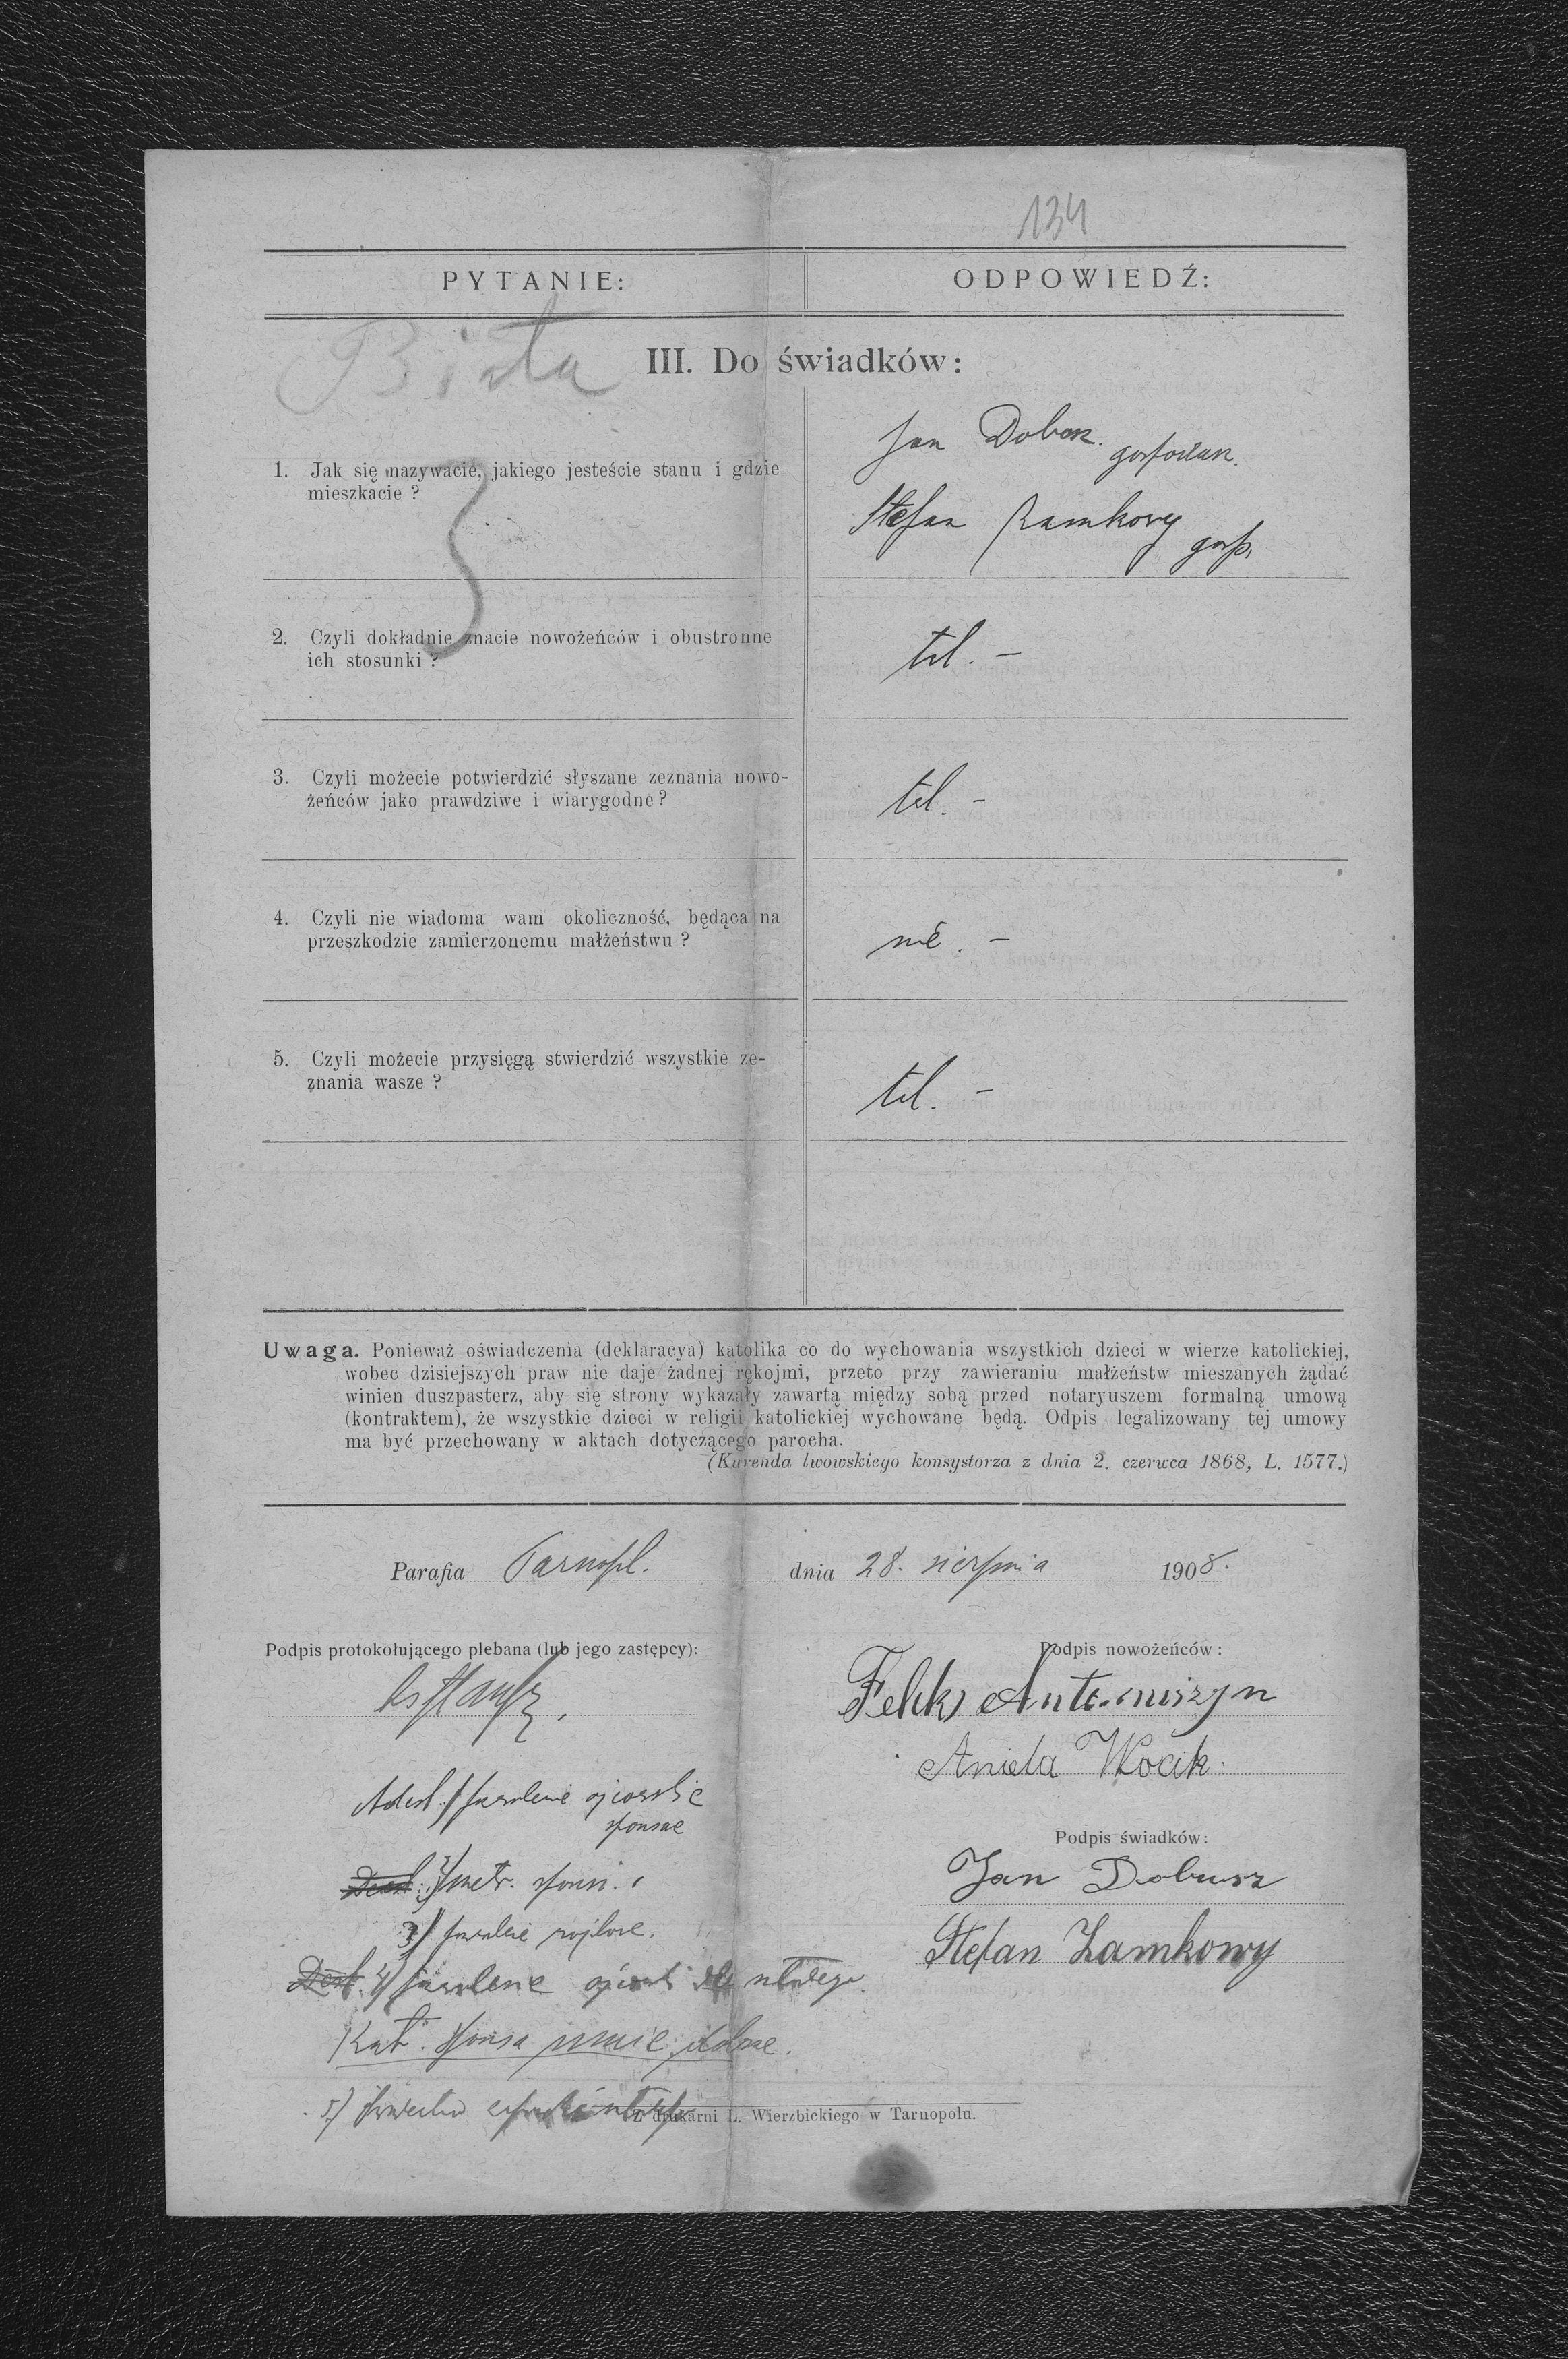 134
PYTANIE:
ODPOWIEDŹ:
Biała
III. Do świadków:
1. Jak się nazywacie, jakiego jesteście stanu i gdzie
mieszkacie ?
Jan
Stefan Zamkowy gosp.
2. Czyli dokładnie znacie nowożeńców i obustronne
ich stosunki ?
3. Czyli możecie potwierdzić słyszane zeznania nowo-
żeńców jako prawdziwe i wiarygodne ?
4. Czyli nie wiadoma wam okoliczność, będąca na
przeszkodzie zamierzonemu małżeństwu ?
nie. –
5. Czyli możecie przysięgą stwierdzić wszystkie ze-
znania wasze ?
Uwaga. Ponieważ oświadczenia (deklaracya) katolika co do wychowania wszystkich dzieci w wierze katolickiej,
wobec dzisiejszych praw nie daje żadnej rękojmi, przeto przy zawieraniu małżeństw mieszanych żądać
winien duszpasterz, aby się strony wykazały zawartą między sobą przed notaryuszem formalną umową
(kontraktem), że wszystkie dzieci w religii katolickiej wychowane będą. Odpis legalizowany tej umowy
ma być przechowany w aktach dotyczącego parocha.
(Kurenda lwowskiego konsystorza z dnia 2. czerwca 1868, L. 1577.)
Parafia Tarnopl. dnia 28. sierpnia 1908.
Podpis protokołującego plebana (lub jego zastępcy):
Podpis nowożeńców:
Feliks Antoniszyn
Aniela Wocik
sponsae
Podpis świadków:
Jan Dobusz
metr. sponsi
Stefan Zamkowy
Kat. sponsa umie dobrze.
Z drukarni L. Wierzbickiego w Tarnopolu.